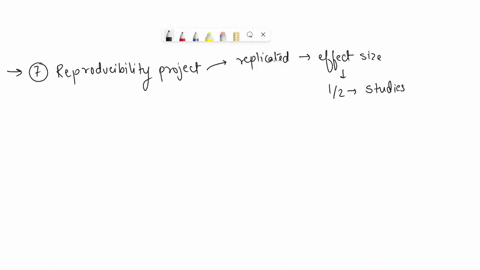 → ⑦ Reproducibility project → replicated → effect size
↓
1/2 → studies